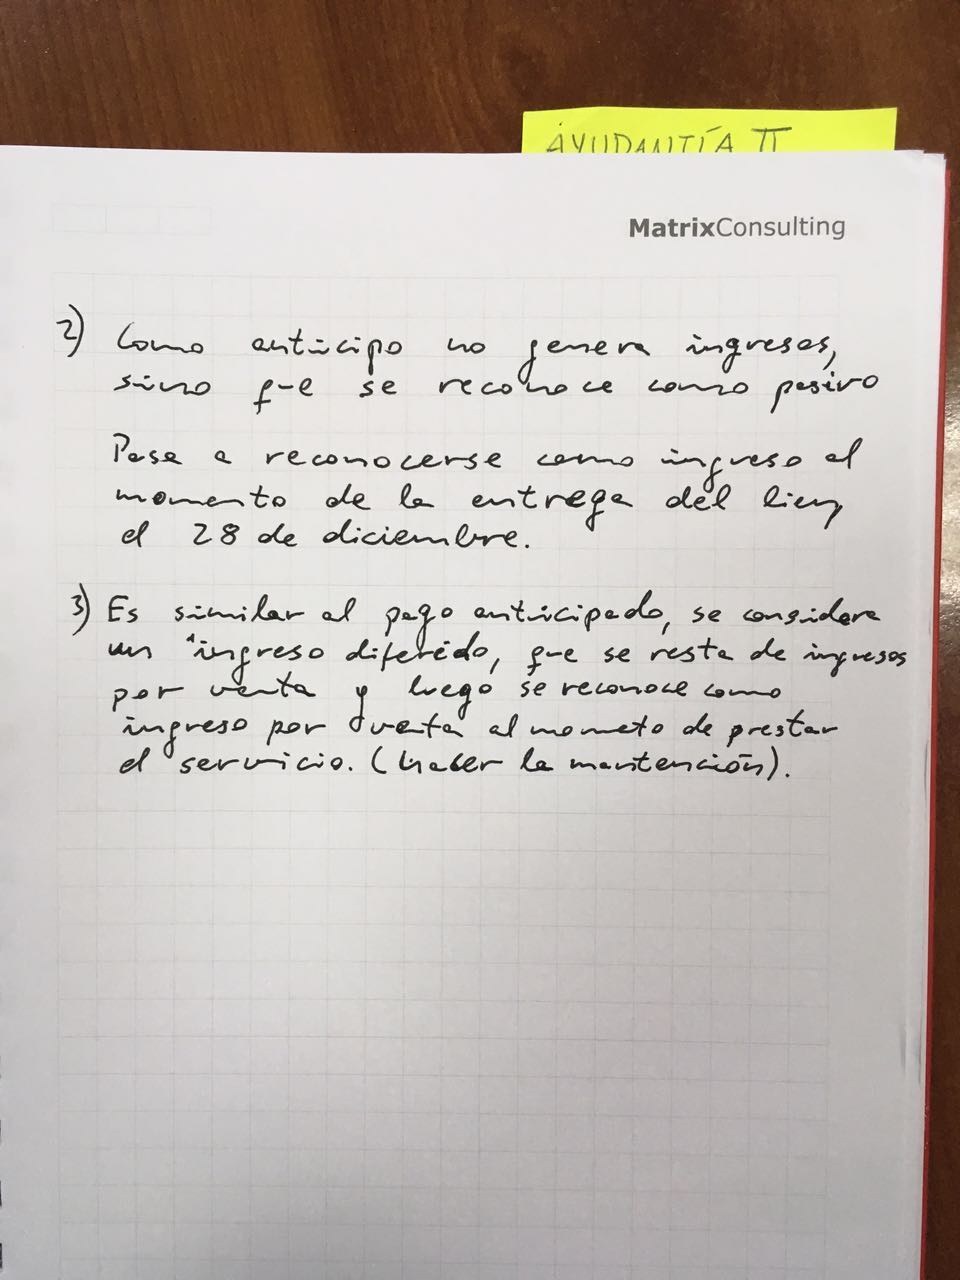 AYUDANTÍA II
MatrixConsulting
2) Como anticipo no genera ingresos,
sino que se reconoce como pasivo
Pasa a reconocerse como ingreso al
momento de la entrega del bien,
el 28 de diciembre.
3) Es similar al pago anticipado, se considera
un "ingreso diferido, que se resta de ingresos
por venta y luego se reconoce como
ingreso por venta al mometo de prestar
el servicio. (hacer la mantención).